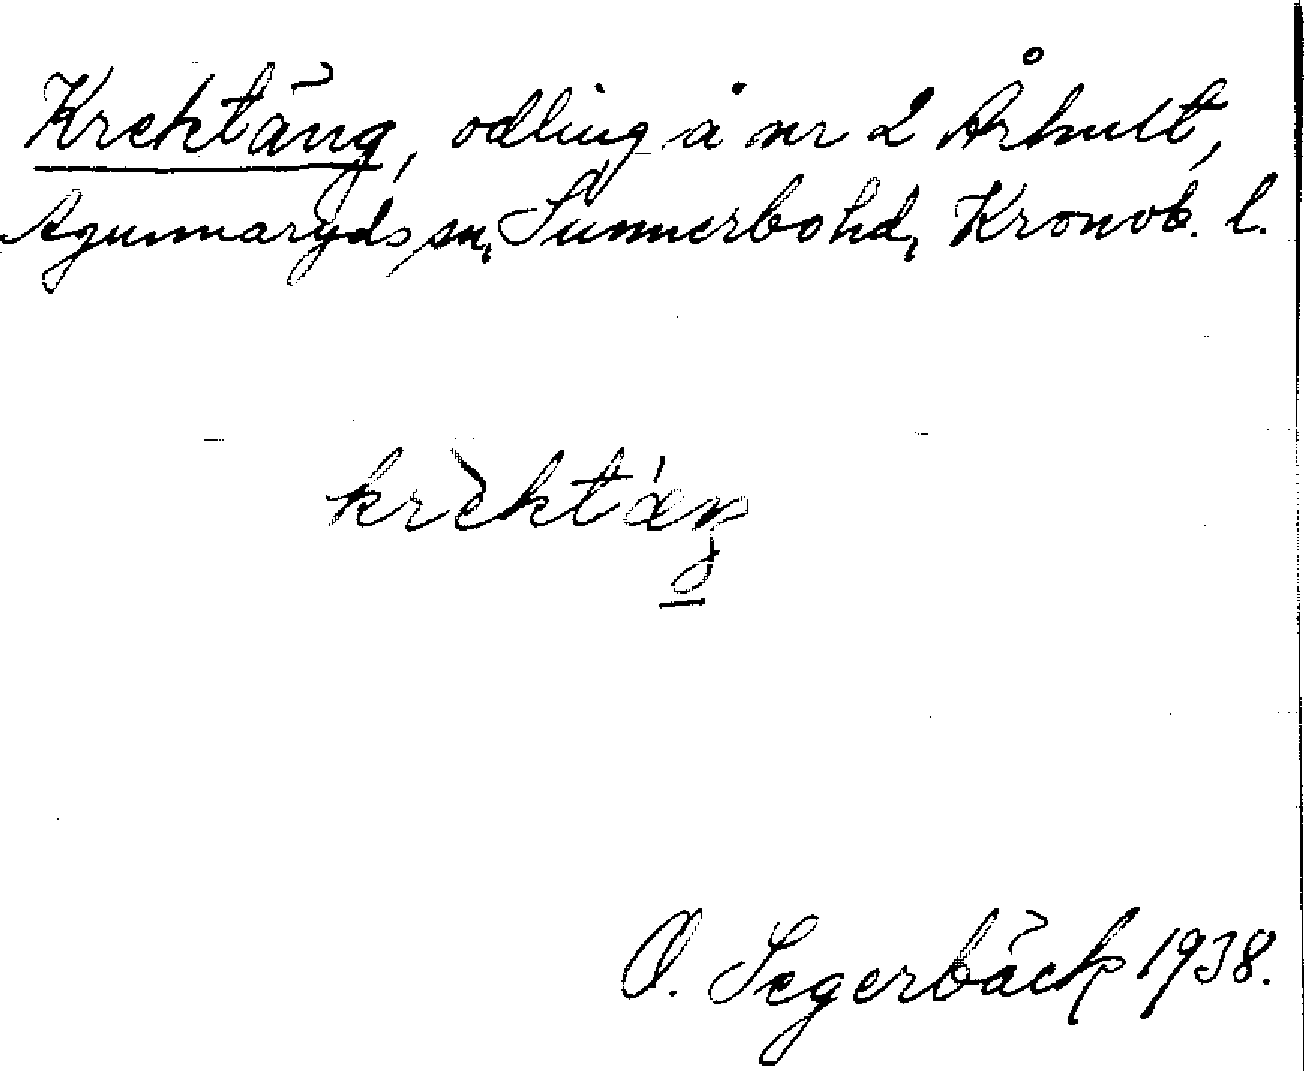 Krektäng, odling å nr 2 Århult,
Agunnaryds sn, Sunnerbo hd, Kronob. l.
krèktáŋ
O. Segerbäck 1938.